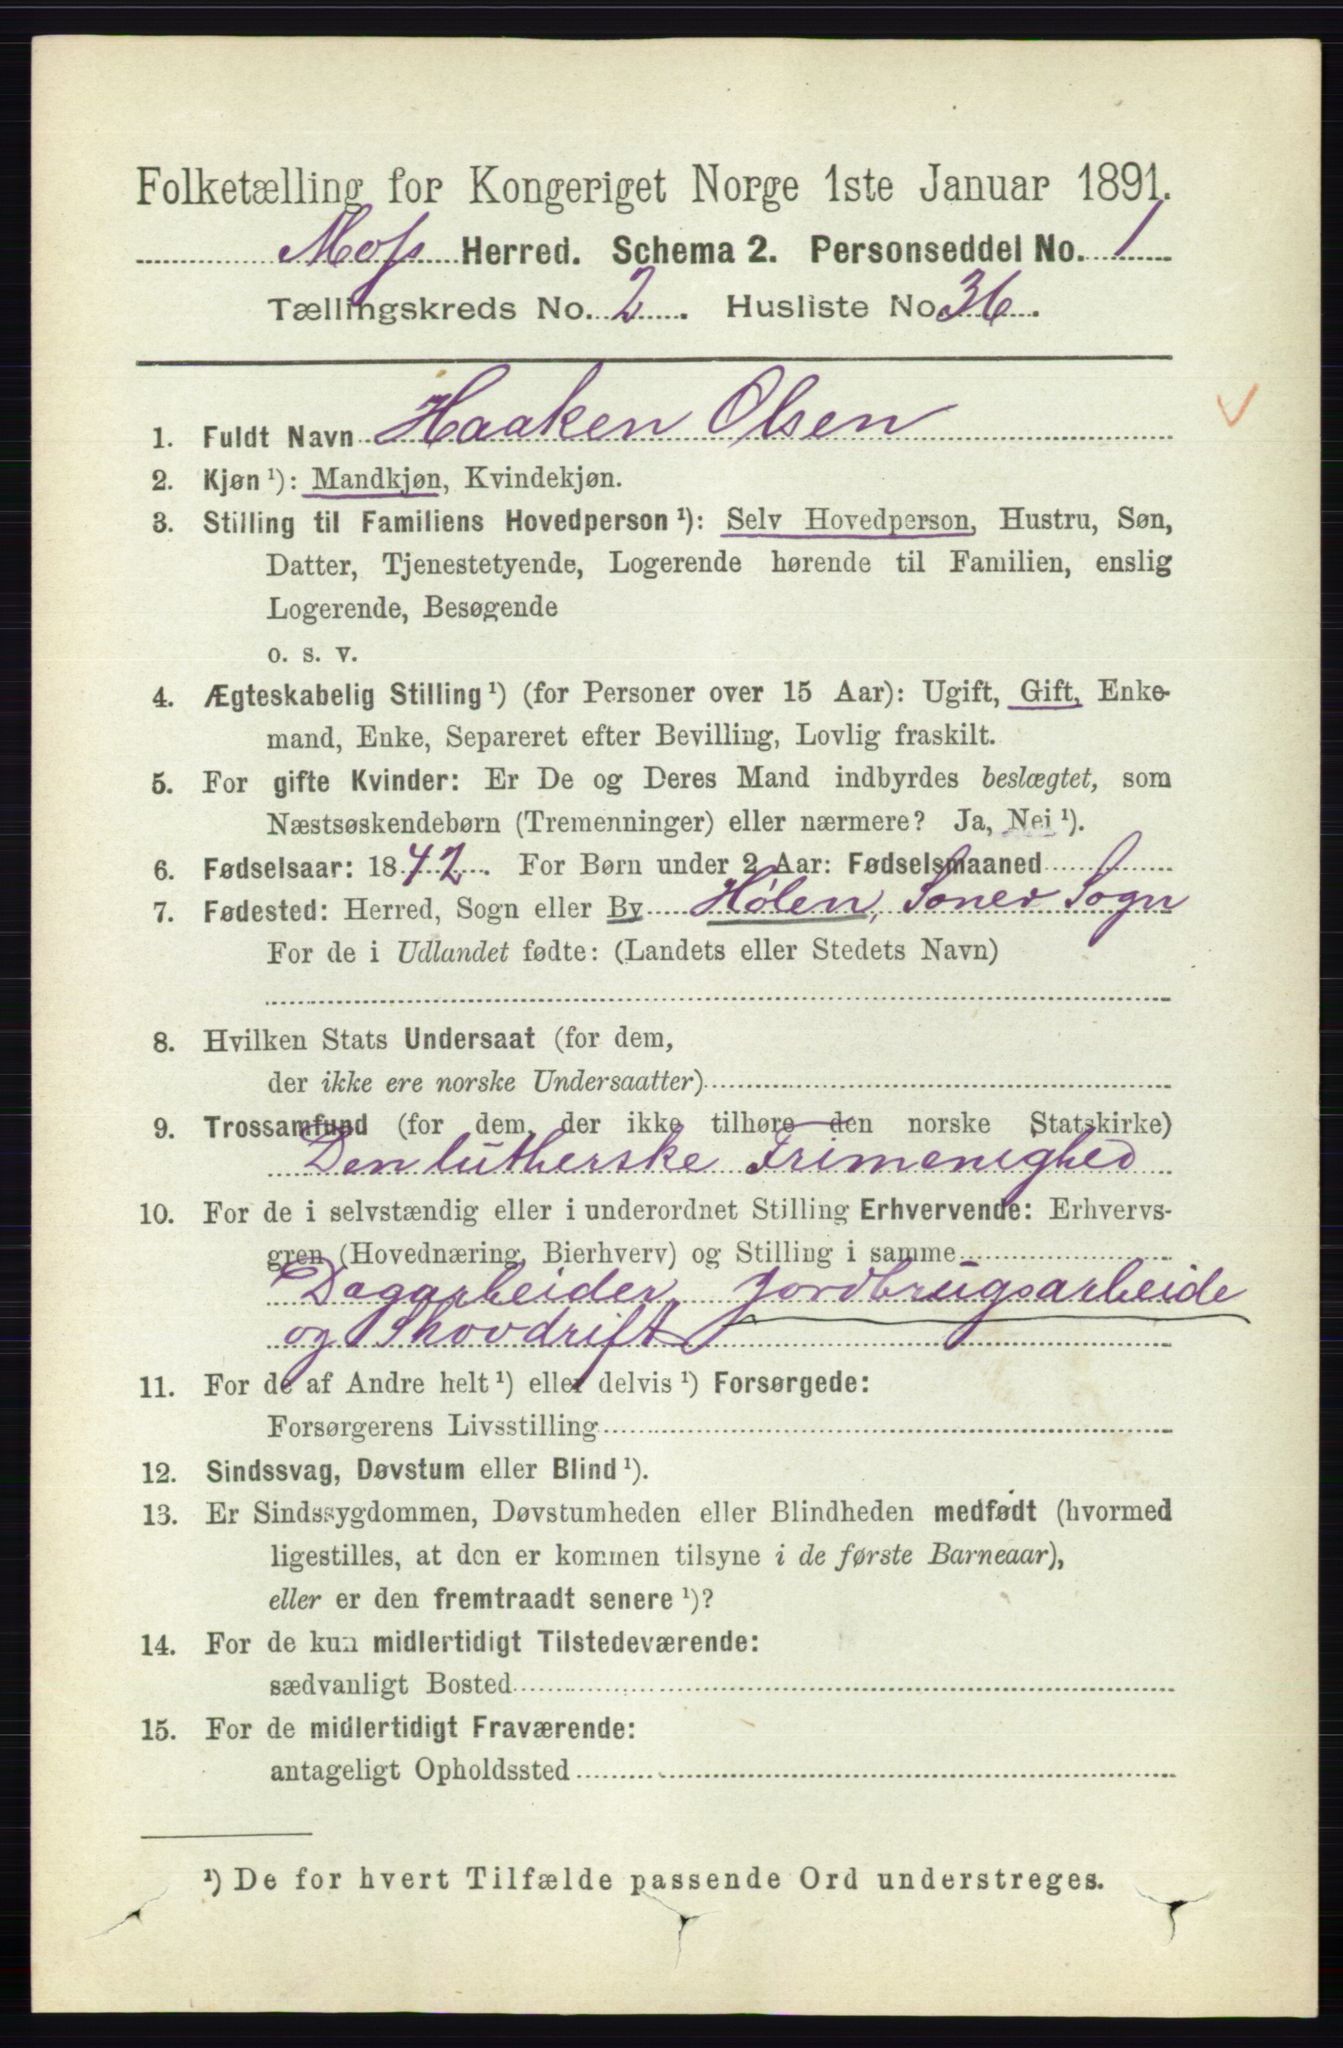 Folketælling for Kongeriget Norge 1ste Januar 1891.
Moss Herred. Schema 2. Personseddel No. 1
Tællingskreds No. 2. Husliste No. 36.
1. Fuldt Navn Haaken Olsen
2. Kjøn ¹): Mandkjøn, Kvindekjøn.
3. Stilling til Familiens Hovedperson ¹): Selv Hovedperson, Hustru, Søn,
Datter, Tjenestetyende, Logerende hørende til Familien, enslig
Logerende, Besøgende
o. s. v.
4. Ægteskabelig Stilling ¹) (for Personer over 15 Aar): Ugift, Gift, Enke-
mand, Enke, Separeret efter Bevilling, Lovlig fraskilt.
5. For gifte Kvinder: Er De og Deres Mand indbyrdes beslægtet, som
Næstsøskendebørn (Tremenninger) eller nærmere? Ja, Nei ¹).
6. Fødselsaar: 1842. For Børn under 2 Aar: Fødselsmaaned
7. Fødested: Herred, Sogn eller By Hølen, Soner Sogn
For de i Udlandet fødte: (Landets eller Stedets Navn)
8. Hvilken Stats Undersaat (for dem,
der ikke ere norske Undersaatter)
9. Trossamfund (for dem, der ikke tilhøre den norske Statskirke)
Den lutherske Frimenighed
10. For de i selvstændig eller i underordnet Stilling Erhvervende: Erhvervs-
gren (Hovednæring, Bierhverv) og Stilling i samme
Dagarbeider, Jordbrugsarbeide
og Skovdrift
11. For de af Andre helt ¹) eller delvis ¹) Forsørgede:
Forsørgerens Livsstilling
12. Sindssvag, Døvstum eller Blind ¹).
13. Er Sindssygdommen, Døvstumheden eller Blindheden medfødt (hvormed
ligestilles, at den er kommen tilsyne i de første Barneaar),
eller er den fremtraadt senere ¹)?
14. For de kun midlertidigt Tilstedeværende:
sædvanligt Bosted
15. For de midlertidigt Fraværende:
antageligt Opholdssted
¹) De for hvert Tilfælde passende Ord understreges.